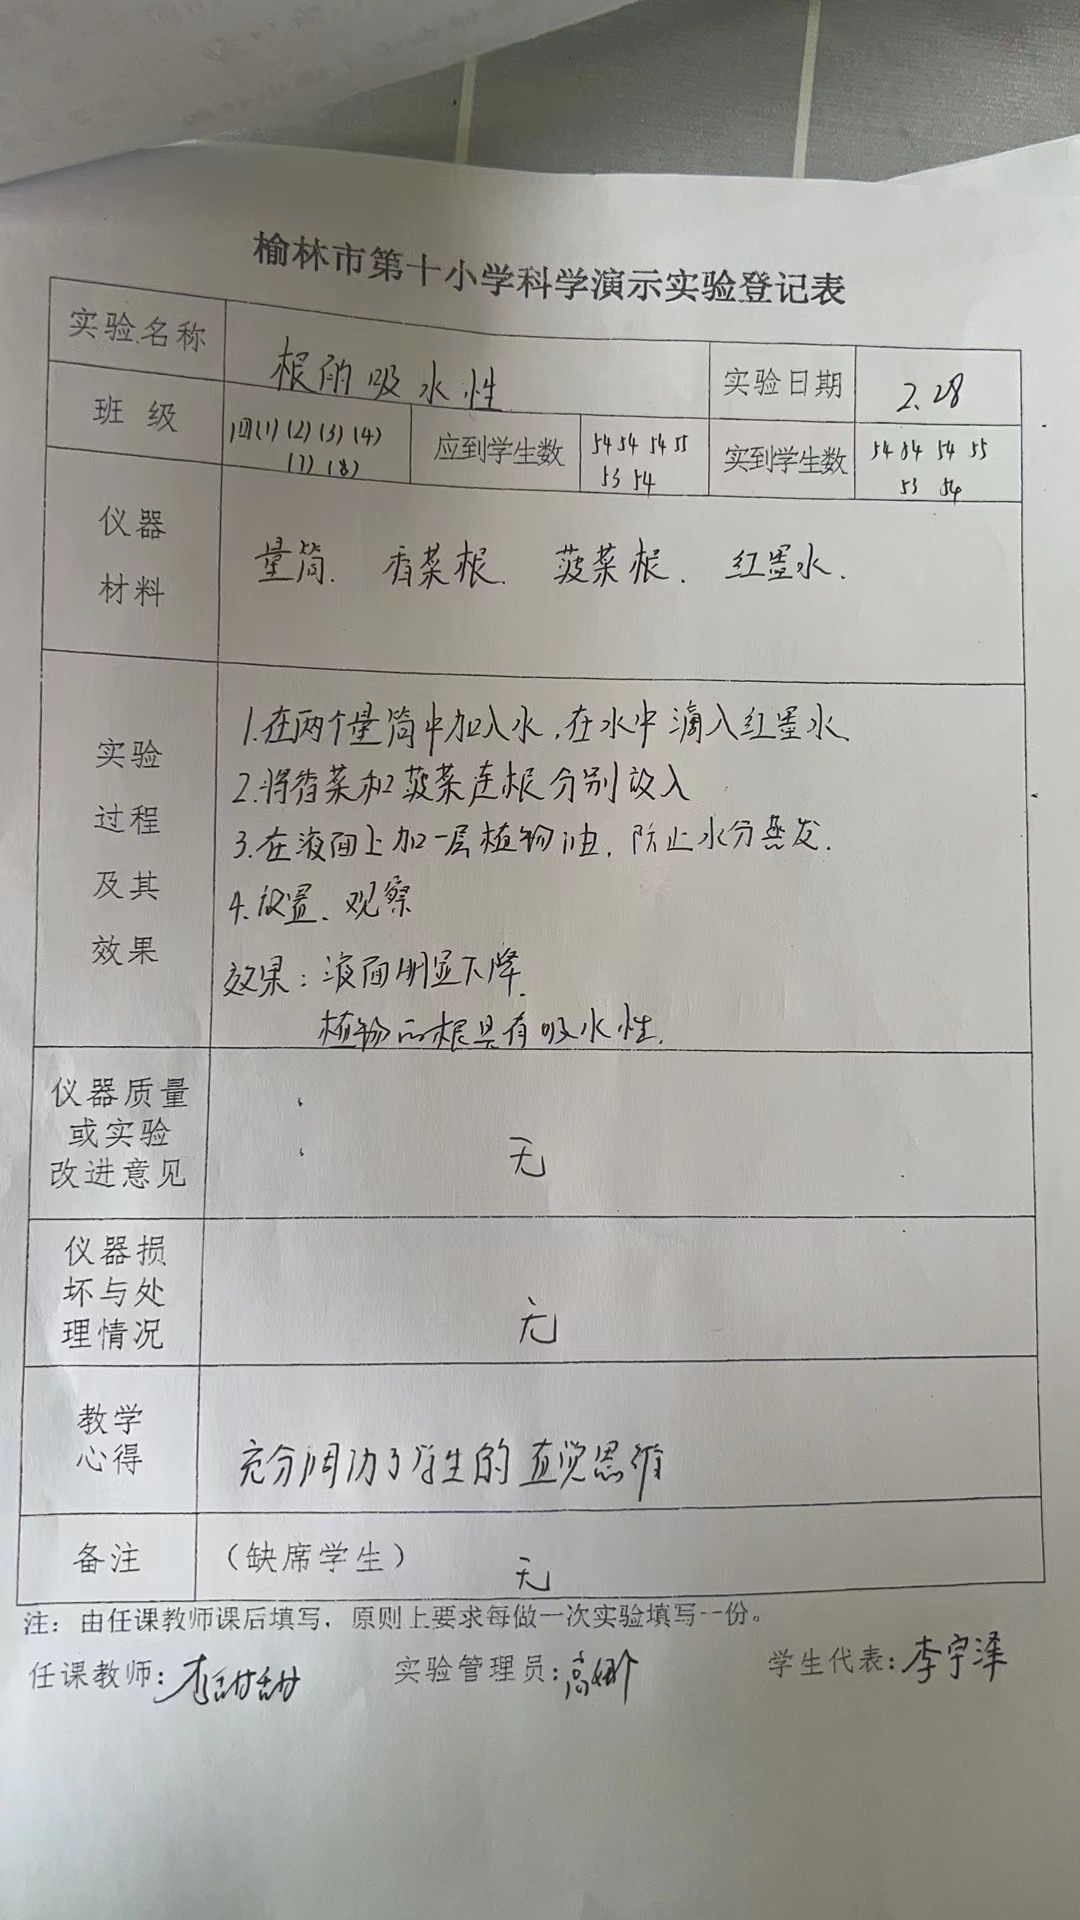 榆林市第十小学科学演示实验登记表
实验名称 根的吸水性 实验日期 2.28
班 级 四(1) (2) (3) (4) 应到学生数 54 54 54 55 实到学生数 54 54 54 55
(7) (8) 53 54 53 54
仪器
材料
量筒. 香菜根. 菠菜根. 红墨水.
实验
过程
及其
效果
1.在两个量筒中加入水,在水中滴入红墨水.
2.将香菜和菠菜连根分别放入
3.在液面上加一层植物油,防止水分蒸发.
4.放置、观察
效果:液面明显下降.
植物的根具有吸水性.
仪器质量
或实验
改进意见
无
仪器损
坏与处
理情况
无
教学
心得
充分调动了学生的直觉思维
备注 (缺席学生) 无
注:由任课教师课后填写,原则上要求每做一次实验填写一份。
任课教师:李甜甜 实验管理员:高娜 学生代表:李宇泽